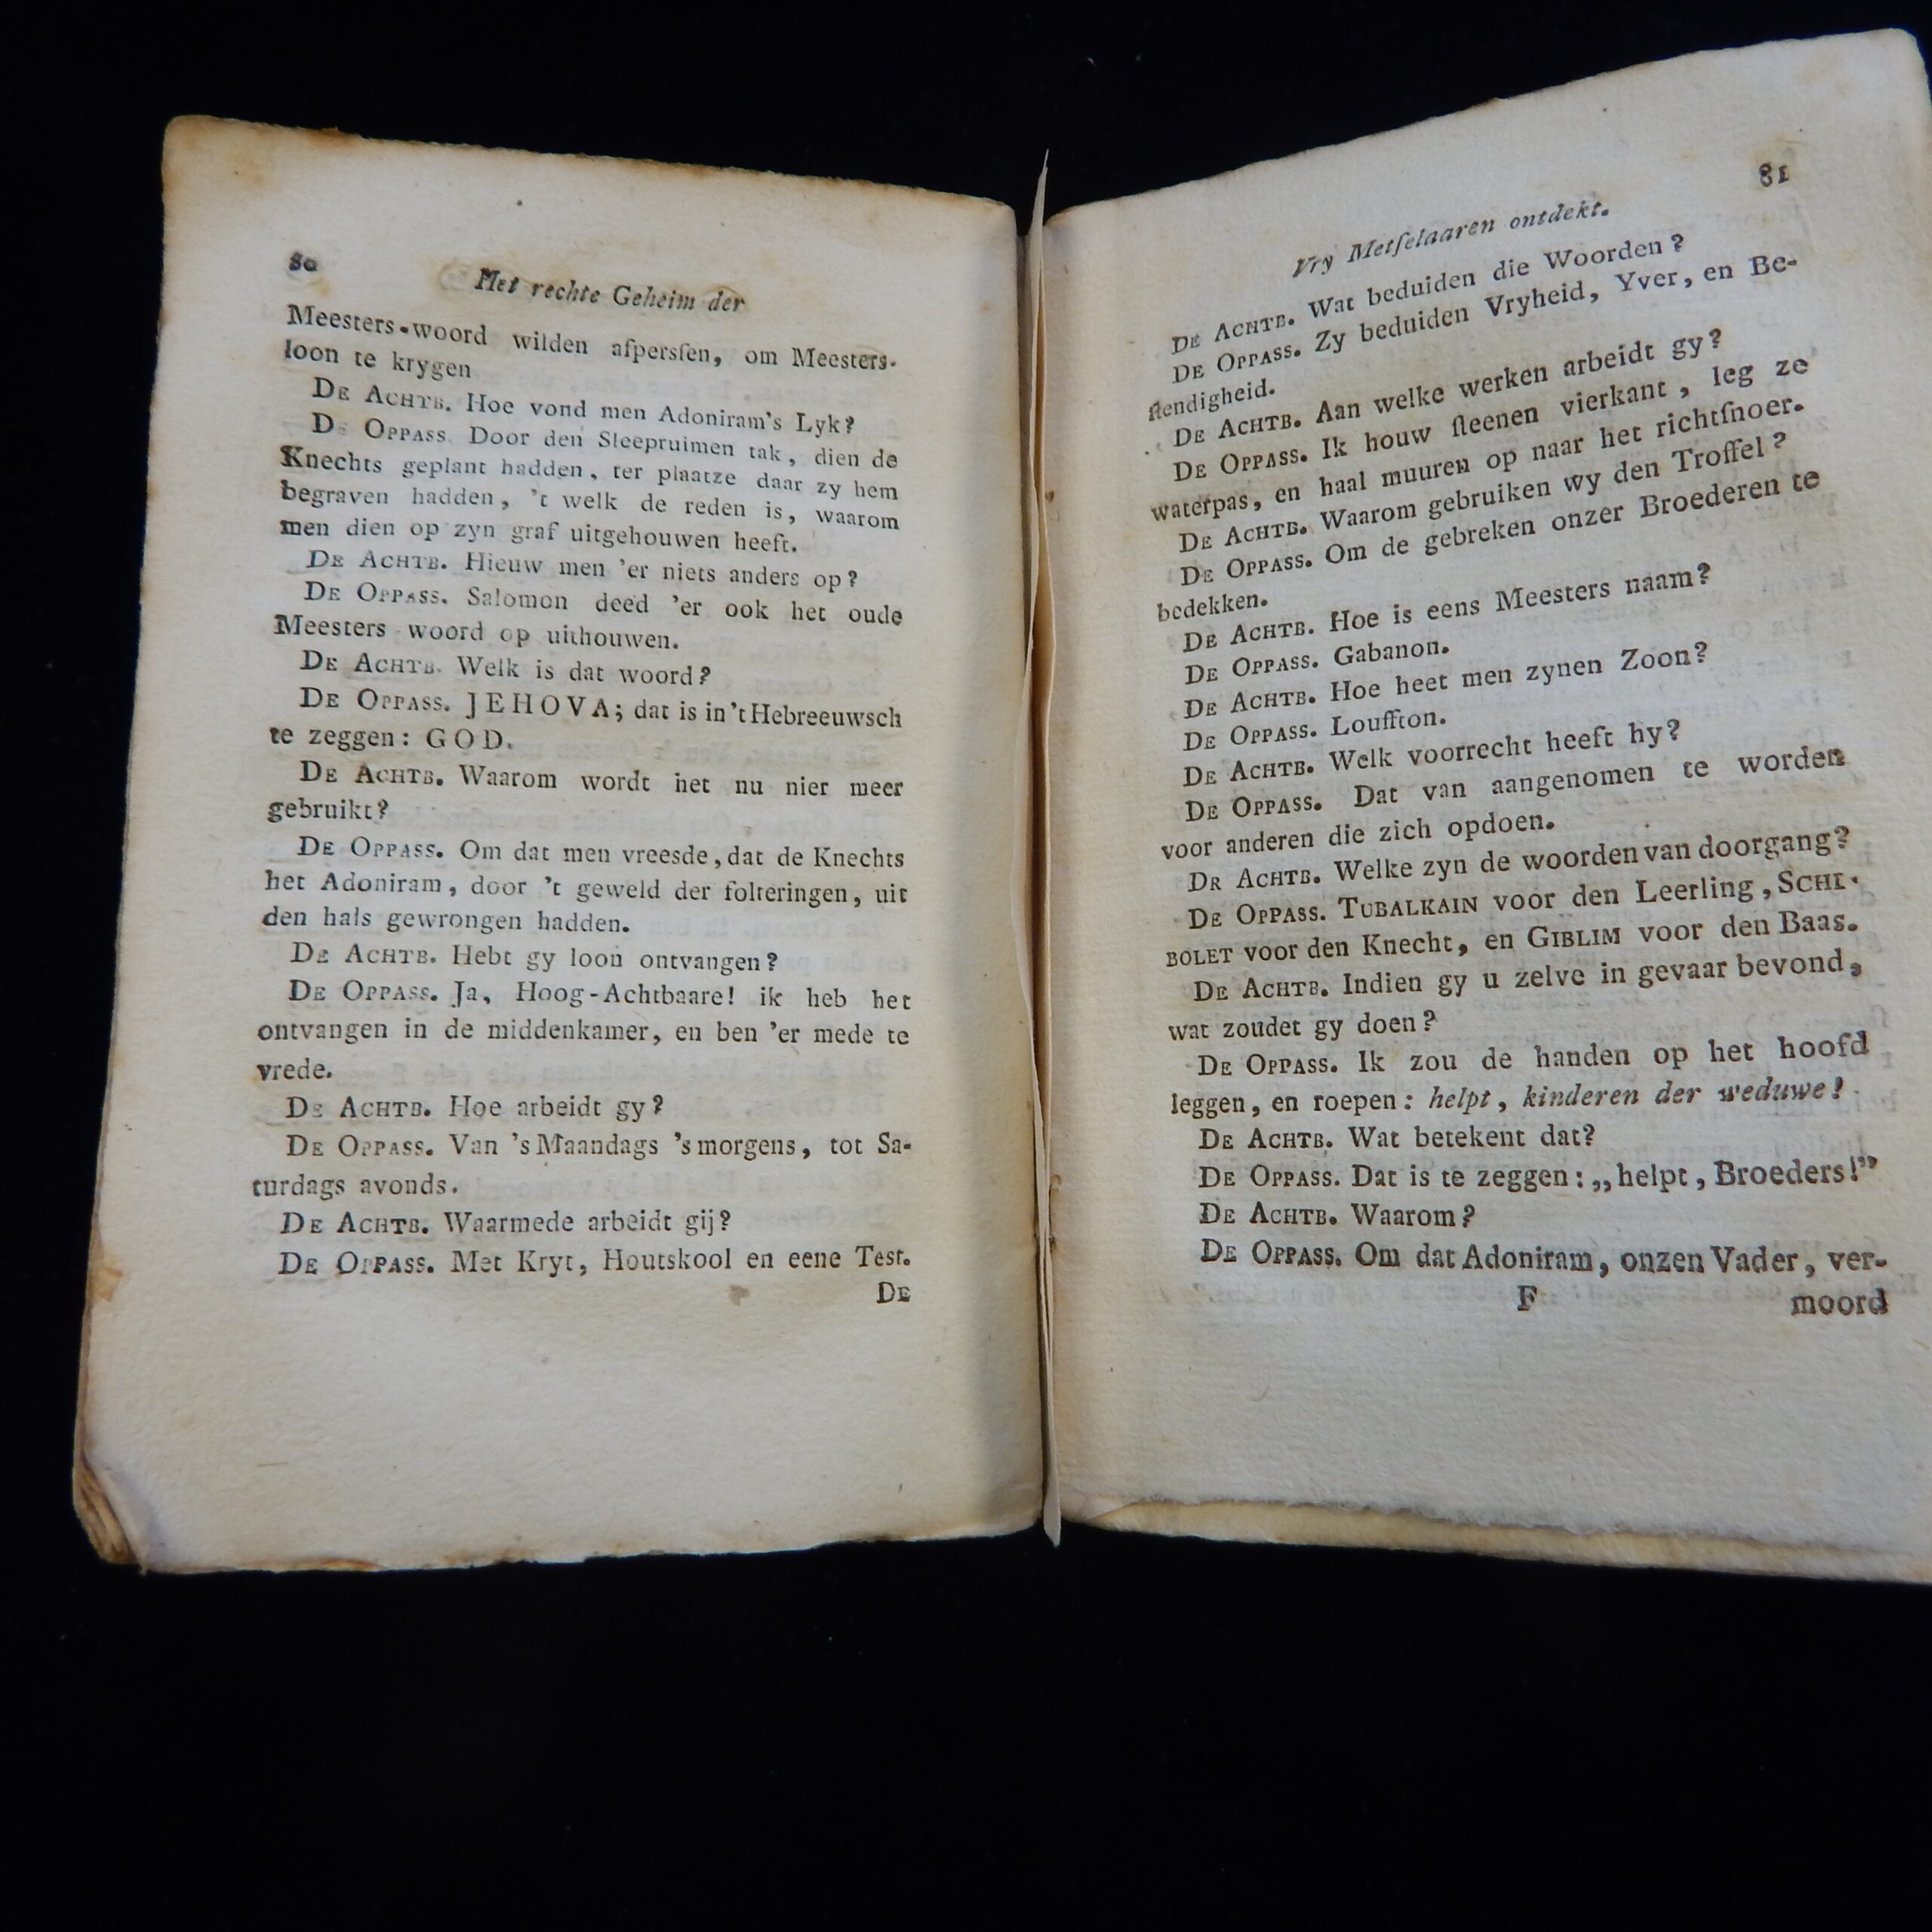 80
Het rechte Geheim der
Meesters-woord wilden afpersſen, om Meesters-
loon te krygen
DE ACHTB. Hoe vond men Adoniram's Lyk?
DE OPPASS. Door den Sleepruimen tak, dien de
Knechts geplant hadden, ter plaatze daar zy hem
begraven hadden, 't welk de reden is, waarom
men dien op zyn graf uitgehouwen heeft.
DE ACHTB. Hieuw men 'er niets anders op?
DE OPPASS. Salomon deed 'er ook het oude
Meesters woord op uithouwen.
DE ACHTB. Welk is dat woord?
DE OPPASS. JEHOVA; dat is in 't Hebreeuwsch
te zeggen: GOD.
DE ACHTB. Waarom wordt het nu niet meer
gebruikt?
DE OPPASS. Om dat men vreesde, dat de Knechts
het Adoniram, door 't geweld der folteringen, uit
den hals gewrongen hadden.
DE ACHTB. Hebt gy loon ontvangen?
DE OPPASS. Ja, Hoog-Achtbaare! ik heb het
ontvangen in de middenkamer, en ben 'er mede te
vrede.
DE ACHTB. Hoe arbeidt gy?
DE OPPASS. Van 's Maandags 's morgens, tot Sa-
turdags avonds.
DE ACHTB. Waarmede arbeidt gij?
DE OPPASS. Met Kryt, Houtskool en eene Test.
DE
81
Vry Metſelaaren ontdekt.
DE ACHTB. Wat beduiden die Woorden?
DE OPPASS. Zy beduiden Vryheid, Yver, en Be-
ſtendigheid.
DE ACHTB. Aan welke werken arbeidt gy?
DE OPPASS. Ik houw ſteenen vierkant, leg ze
waterpas, en haal muuren op naar het richtſnoer.
DE ACHTB. Waarom gebruiken wy den Troffel?
DE OPPASS. Om de gebreken onzer Broederen te
bedekken.
DE ACHTB. Hoe is eens Meesters naam?
DE OPPASS. Gabanon.
DE ACHTB. Hoe heet men zynen Zoon?
DE OPPASS. Louffton.
DE ACHTB. Welk voorrecht heeft hy?
DE OPPASS. Dat van aangenomen te worden
voor anderen die zich opdoen.
DR ACHTB. Welke zyn de woorden van doorgang?
DE OPPASS. TUBALKAIN voor den Leerling, SCHI-
BOLET voor den Knecht, en GIBLIM voor den Baas.
DE ACHTB. Indien gy u zelve in gevaar bevond,
wat zoudet gy doen?
DE OPPASS. Ik zou de handen op het hoofd
leggen, en roepen: helpt, kinderen der weduwe!
DE ACHTB. Wat betekent dat?
DE OPPASS. Dat is te zeggen: „helpt, Broeders!”
DE ACHTB. Waarom?
DE OPPASS. Om dat Adoniram, onzen Vader, ver-
F
moord